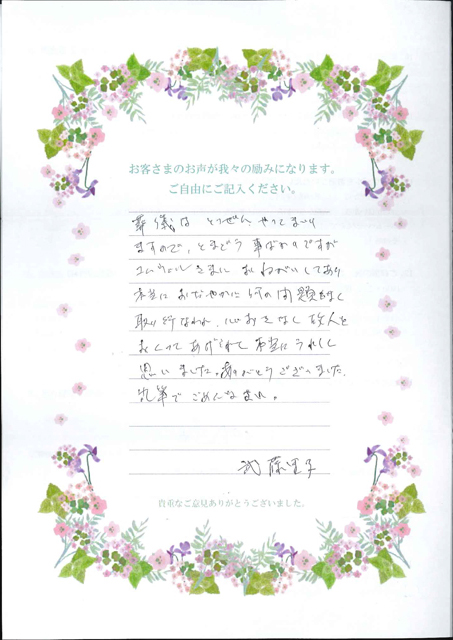 お客さまのお声が我々の励みになります。
ご自由にご記入ください。
葬儀は とつぜん やってまいり
ますので、とまどう 事ばかりですが
さまに おねがいしてあり
本当に おだやかに 何の問題もなく
取り行なわれ、心おきなく 故人を
おくってあげられて 本当にうれしく
思いました。ありがとうございました。
乱筆で ごめんなさい。
武藤里子
貴重なご意見ありがとうございました。